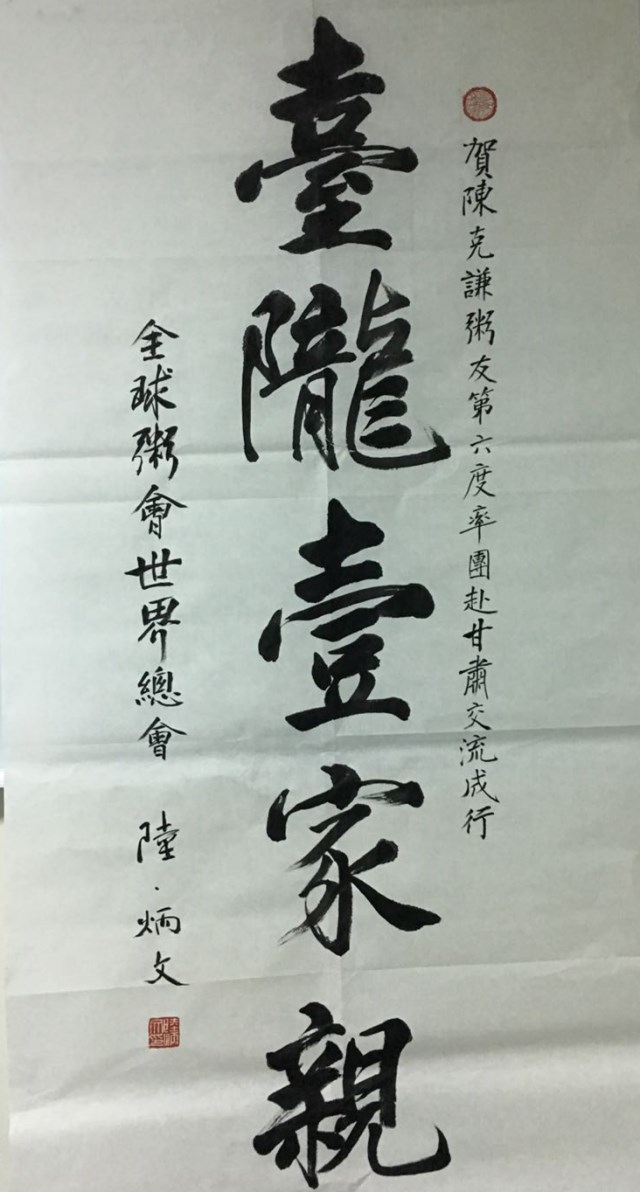 賀陳克謙粥友第六度率團赴甘肅交流成行
臺隴壹家親
全球粥會世界總會 陸·炳文